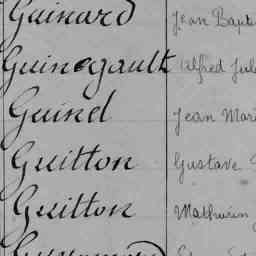 Guinard Jean Bapt
Guinegault Alfred Jul
Guinel Jean Mari
Guitton Gustave
Guitton Mathurin